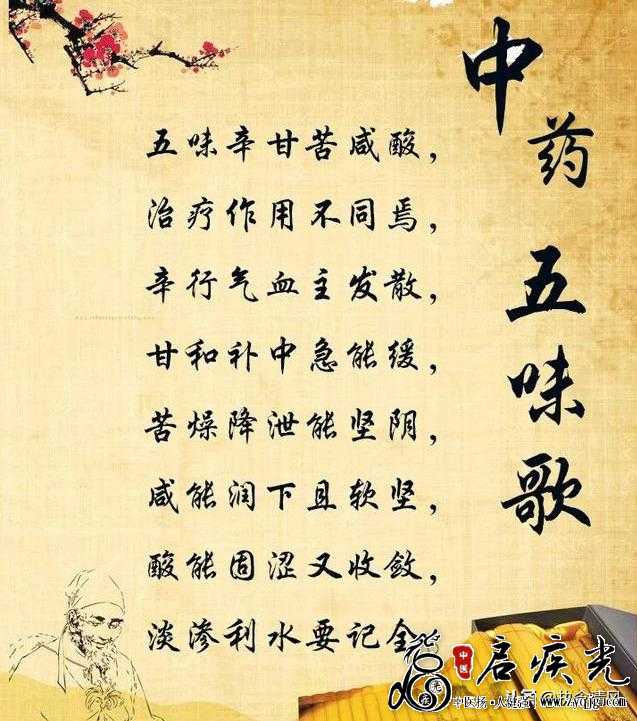 中药五味歌
五味辛甘苦咸酸，
治疗作用不同焉，
辛行气血主发散，
甘和补中急能缓，
苦燥降泄能坚阴，
咸能润下且软坚，
酸能固涩又收敛，
淡渗利水要记全
中医
启疾光